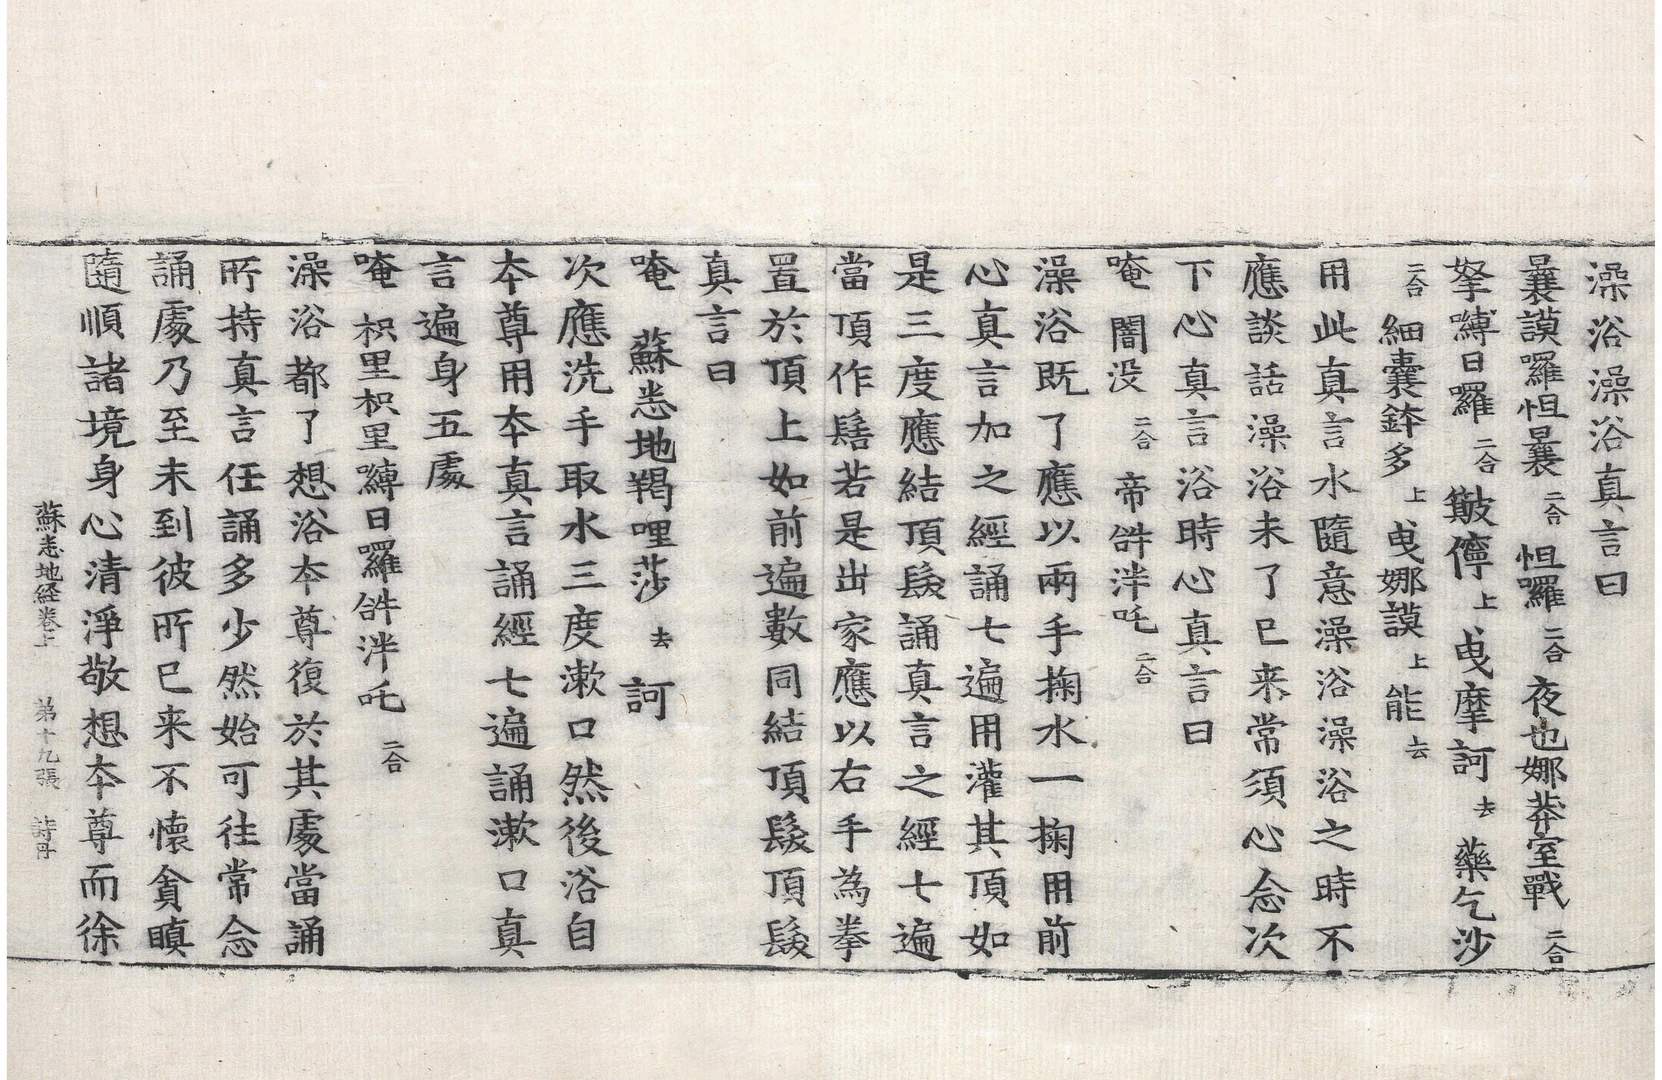 澡浴澡浴真言曰
曩謨囉怛曩二合怛囉二合夜也娜莽室戰二合
拏嚩日囉二合皺儜上曳摩訶去藥乞沙
二合細囊鉢多上曳娜謨上能去
用此真言水隨意澡浴澡浴之時不
應談話澡浴未了已来常須心念次
下心真言浴時心真言曰
唵闇没二合帝𤙖泮吒二合
澡浴既了應以兩手掬水一掬用前
心真言加之經誦七遍用灌其頂如
是三度應結頂髮誦真言之經七遍
當頂作髻若是出家應以右手為拳
置於頂上如前遍數同結頂髮頂髮
真言曰
唵蘇悉地羯哩莎去訶
次應洗手取水三度漱口然後浴自
夲尊用夲真言誦經七遍誦漱口真
言遍身五處
唵枳里枳里嚩日囉𤙖泮吒二合
澡浴都了想浴夲尊復於其處當誦
所持真言任誦多少然始可往常念
誦處乃至未到彼所已来不懷貪瞋
隨順諸境身心清淨敬想夲尊而徐
蘇悉地経卷上 第十九張 詩